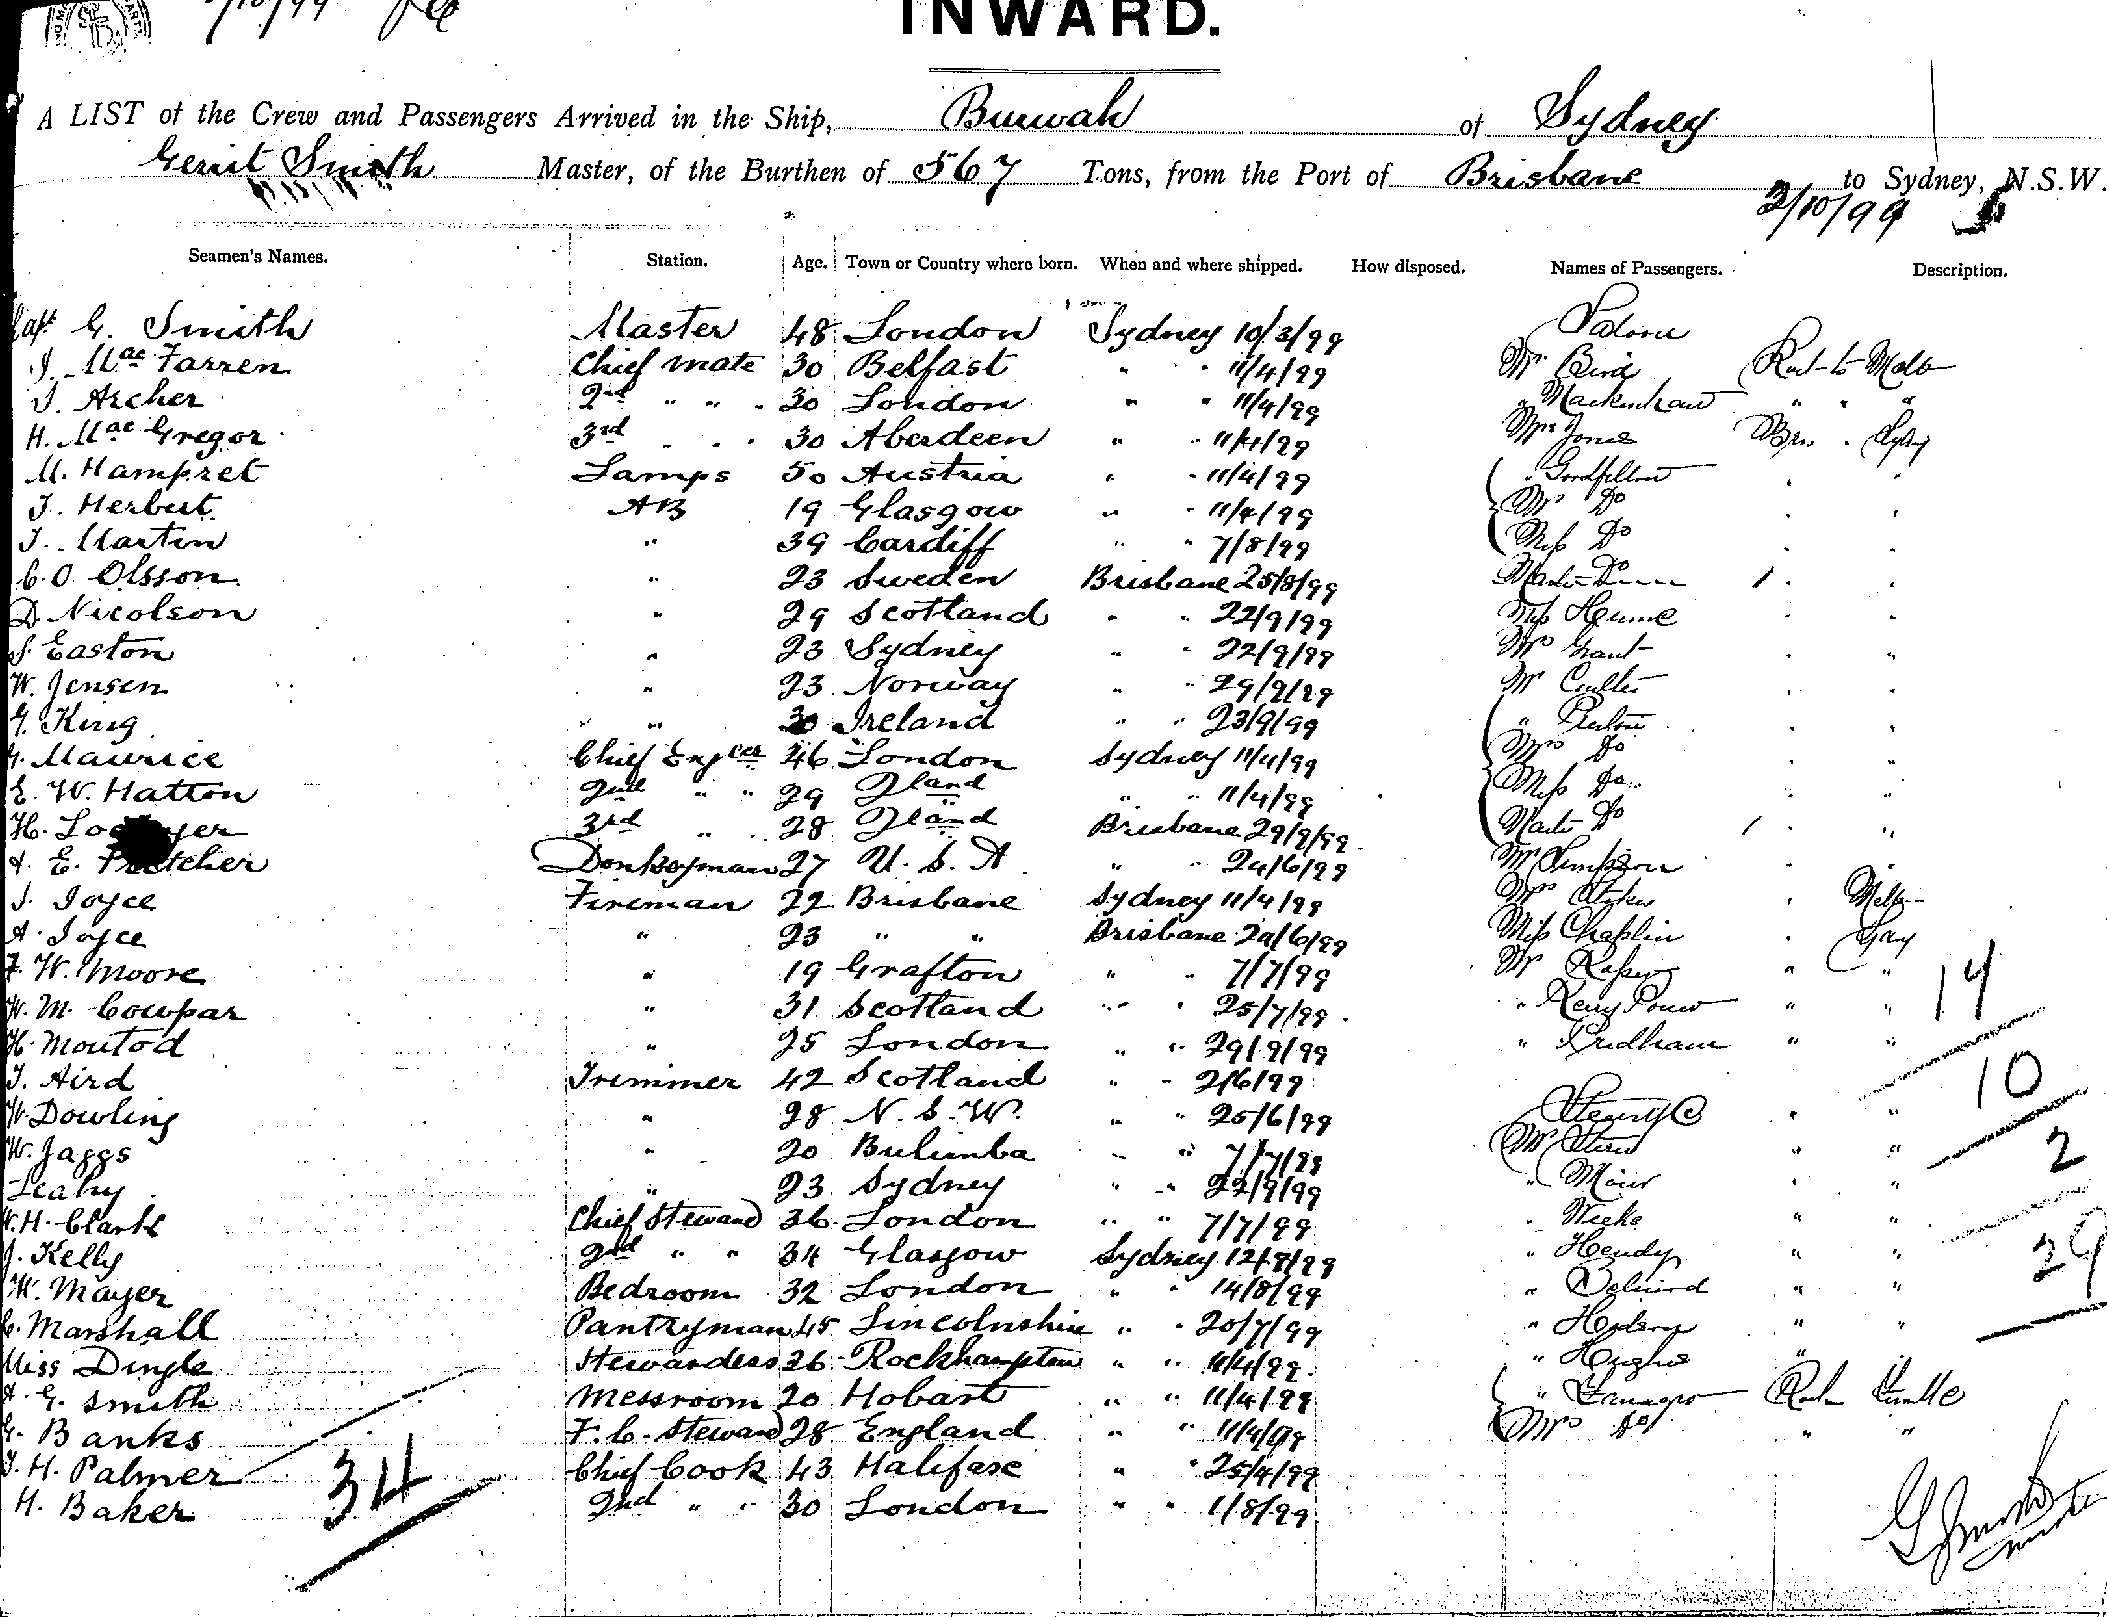 /10/99
INWARD.
A LIST of the Crew and Passengers Arrived in the Ship, Burwah of Sydney
Gerrit Smith Master, of the Burthen of 567 Tons, from the Port of Brisbane to Sydney, N.S.W.
2/10/99
Seamen's Names. Station. Age. Town or Country where born. When and where shipped. How disposed. Names of Passengers. Description.
Capt G. Smith Master 48 London Sydney 10/3/99 Saloon
J. Mac Farren Chief mate 30 Belfast " " 11/4/99 Mr Bird Rock to Melb
J. Archer 2nd " " 30 London " " 11/4/99 " " " "
H. Mac Gregor 3rd " " 30 Aberdeen " " 11/4/99 Mrs Jones Bris " Sydy
M. Hampret Lamps 50 Austria " " 11/4/99 " Goodfellow " "
J. Herbert AB 19 Glasgow " " 11/4/99 Mrs Do " "
J. Martin " 39 Cardiff " " 7/8/99 Miss Do " "
C. O. Olsson " 23 Sweden Brisbane 25/8/99 Master 1 " "
D Nicolson " 29 Scotland " " 22/9/99 Miss Hume " "
S. Easton " 23 Sydney " " 22/9/99 Mrs Grant " "
W. Jensen " 23 Norway " " 29/9/99 Mr Coulter " "
G. King " 30 Ireland " " 23/9/99 " " "
G. Maurice Chief Engeer 46 London Sydney 11/4/99 Mrs Do " "
E. W. Hatton 2nd " " 29 " " 11/4/99 Miss Do " "
H. 3rd " 28 Brisbane 29/9/99 Master Do 1 " "
A. E. Pretcher Donkeyman 27 U. S. A " " 24/6/99 Mr Simpson " "
J. Joyce Fireman 22 Brisbane Sydney 11/4/99 Mrs Stokes " Melb
A. Joyce " 23 " " Brisbane 29/6/99 Miss Chaplin " Sydy
F. W. Moore " 19 Grafton " " 7/7/99 Mr " "
W. M. Cowpar " 31 Scotland " " 25/7/99 " " "
H. Moutod " 25 London " " 29/9/99 " Pridham " "
14
J. Aird Trimmer 42 Scotland " " 2/6/99
10
W. Dowling " 28 N. S. W. " " 25/6/99 Steerage " "
W. Jaggs " 20 Bulimba " " 7/7/99 Mr " "
2
Leahy " 23 Sydney " " 22/9/99 " Moir " "
W. H. Clark Chief Steward 36 London " " 7/7/99 " Weeks " "
J. Kelly 2nd " " 34 Glasgow Sydney 12/8/99 " Hendy " "
29
W. Mayer Bedroom 32 London " " 14/8/99 " " "
C. Marshall Pantryman 45 Lincolnshire " " 20/7/99 " " "
Miss Dingle Stewardess 26 Rockhampton " " 11/4/99 " Hughes " "
A. G. Smith Messroom 20 Hobart " " 11/4/99 "
G. Banks F. C. Steward 28 England " " 11/4/99 Mrs Do " "
J. H. Palmer Chief Cook 43 Halifax " " 25/4/99
H. Baker 2nd " " 30 London " " 1/8/99
34
G Smith
master